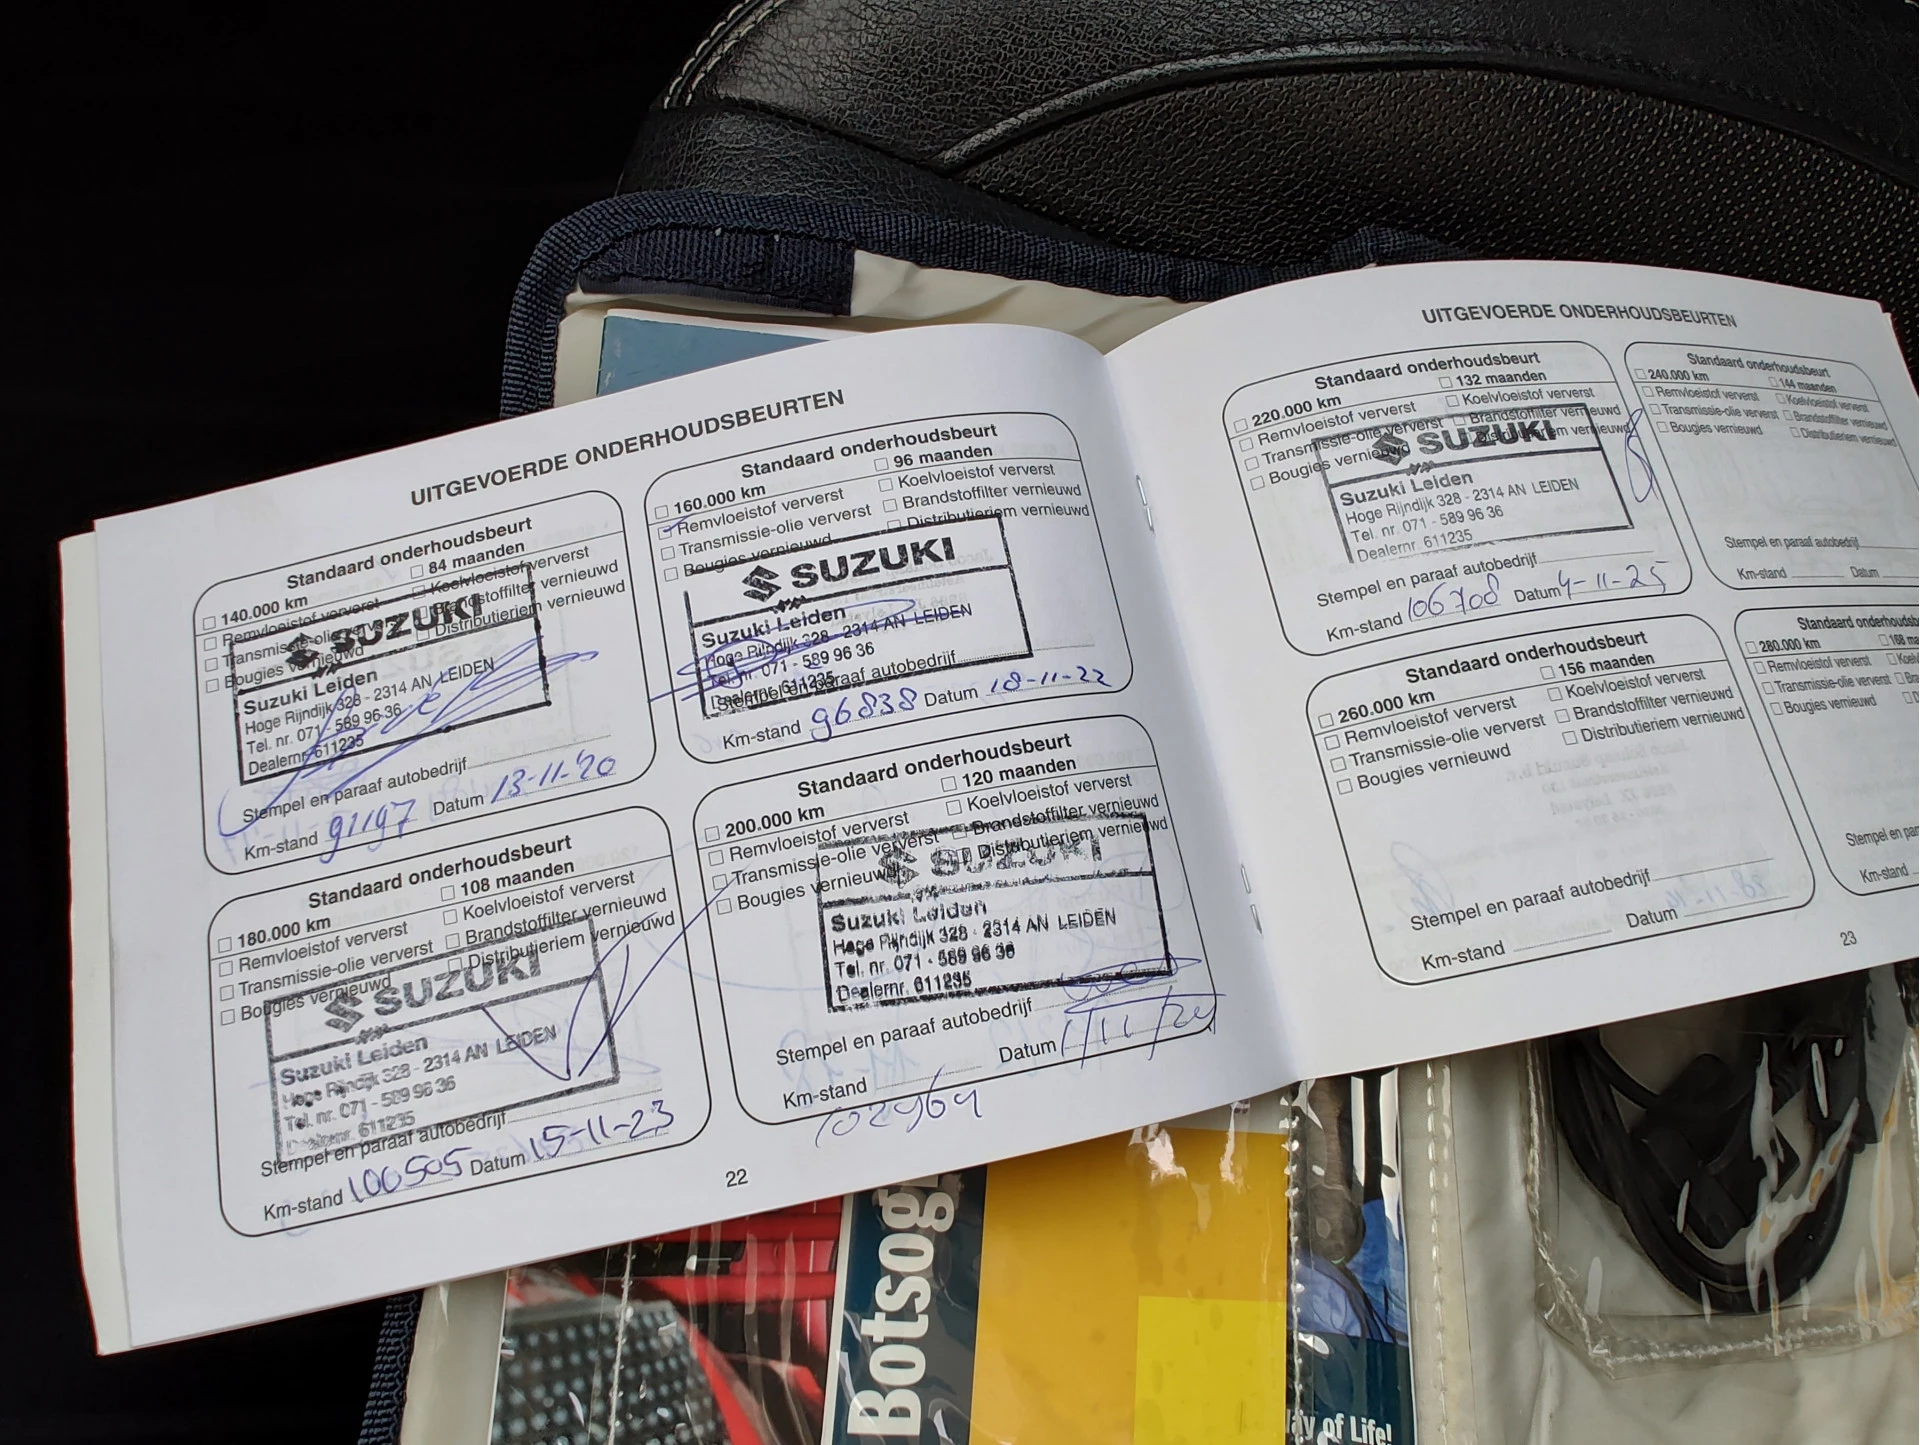 UITGEVOERDE ONDERHOUDSBEURTEN
Standaard onderhoudsbeurt
140.000 km 84 maanden
Remvloeistof ververst Koelvloeistof ververst
Transmissie-olie ververst Brandstoffilter vernieuwd
Bougies vernieuwd Distributieriem vernieuwd
SUZUKI
Suzuki Leiden
Hoge Rijndijk 328 - 2314 AN LEIDEN
Tel. nr. 071 - 589 96 36
Dealernr. 611235
Stempel en paraaf autobedrijf
Km-stand 91197 Datum 13-11-'20
Standaard onderhoudsbeurt
160.000 km 96 maanden
Remvloeistof ververst Koelvloeistof ververst
Transmissie-olie ververst Brandstoffilter vernieuwd
Bougies vernieuwd Distributieriem vernieuwd
SUZUKI
Suzuki Leiden
Hoge Rijndijk 328 - 2314 AN LEIDEN
Tel. nr. 071 - 589 96 36
Dealernr. 611235
Stempel en paraaf autobedrijf
Km-stand 96838 Datum 18-11-22
Standaard onderhoudsbeurt
180.000 km 108 maanden
Remvloeistof ververst Koelvloeistof ververst
Transmissie-olie ververst Brandstoffilter vernieuwd
Bougies vernieuwd Distributieriem vernieuwd
SUZUKI
Suzuki Leiden
Hoge Rijndijk 328 - 2314 AN LEIDEN
Tel. nr. 071 - 589 96 36
Dealernr. 611235
Stempel en paraaf autobedrijf
Km-stand 100505 Datum 15-11-23
Standaard onderhoudsbeurt
200.000 km 120 maanden
Remvloeistof ververst Koelvloeistof ververst
Transmissie-olie ververst Brandstoffilter vernieuwd
Bougies vernieuwd Distributieriem vernieuwd
SUZUKI
Suzuki Leiden
Hoge Rijndijk 328 - 2314 AN LEIDEN
Tel. nr. 071 - 589 96 36
Dealernr. 611235
Stempel en paraaf autobedrijf
Km-stand Datum 1/11/24
102969
22
UITGEVOERDE ONDERHOUDSBEURTEN
Standaard onderhoudsbeurt
220.000 km 132 maanden
Remvloeistof ververst Koelvloeistof ververst
Transmissie-olie ververst Brandstoffilter vernieuwd
Bougies vernieuwd Distributieriem vernieuwd
SUZUKI
Suzuki Leiden
Hoge Rijndijk 328 - 2314 AN LEIDEN
Tel. nr. 071 - 589 96 36
Dealernr. 611235
Stempel en paraaf autobedrijf
Km-stand 106708 Datum 4-11-25
Standaard onderhoudsbeurt
240.000 km 144 maanden
Remvloeistof ververst Koelvloeistof ververst
Transmissie-olie ververst Brandstoffilter vernieuwd
Bougies vernieuwd Distributieriem vernieuwd
Stempel en paraaf autobedrijf
Km-stand Datum
Standaard onderhoudsbeurt
260.000 km 156 maanden
Remvloeistof ververst Koelvloeistof ververst
Transmissie-olie ververst Brandstoffilter vernieuwd
Bougies vernieuwd Distributieriem vernieuwd
Stempel en paraaf autobedrijf
Km-stand Datum
Standaard onderhoudsb
280.000 km 168 ma
Remvloeistof ververst Koel
Transmissie-olie ververst Bra
Bougies vernieuwd D
Stempel en par
Km-stand
23
Botsog
ay of Life!